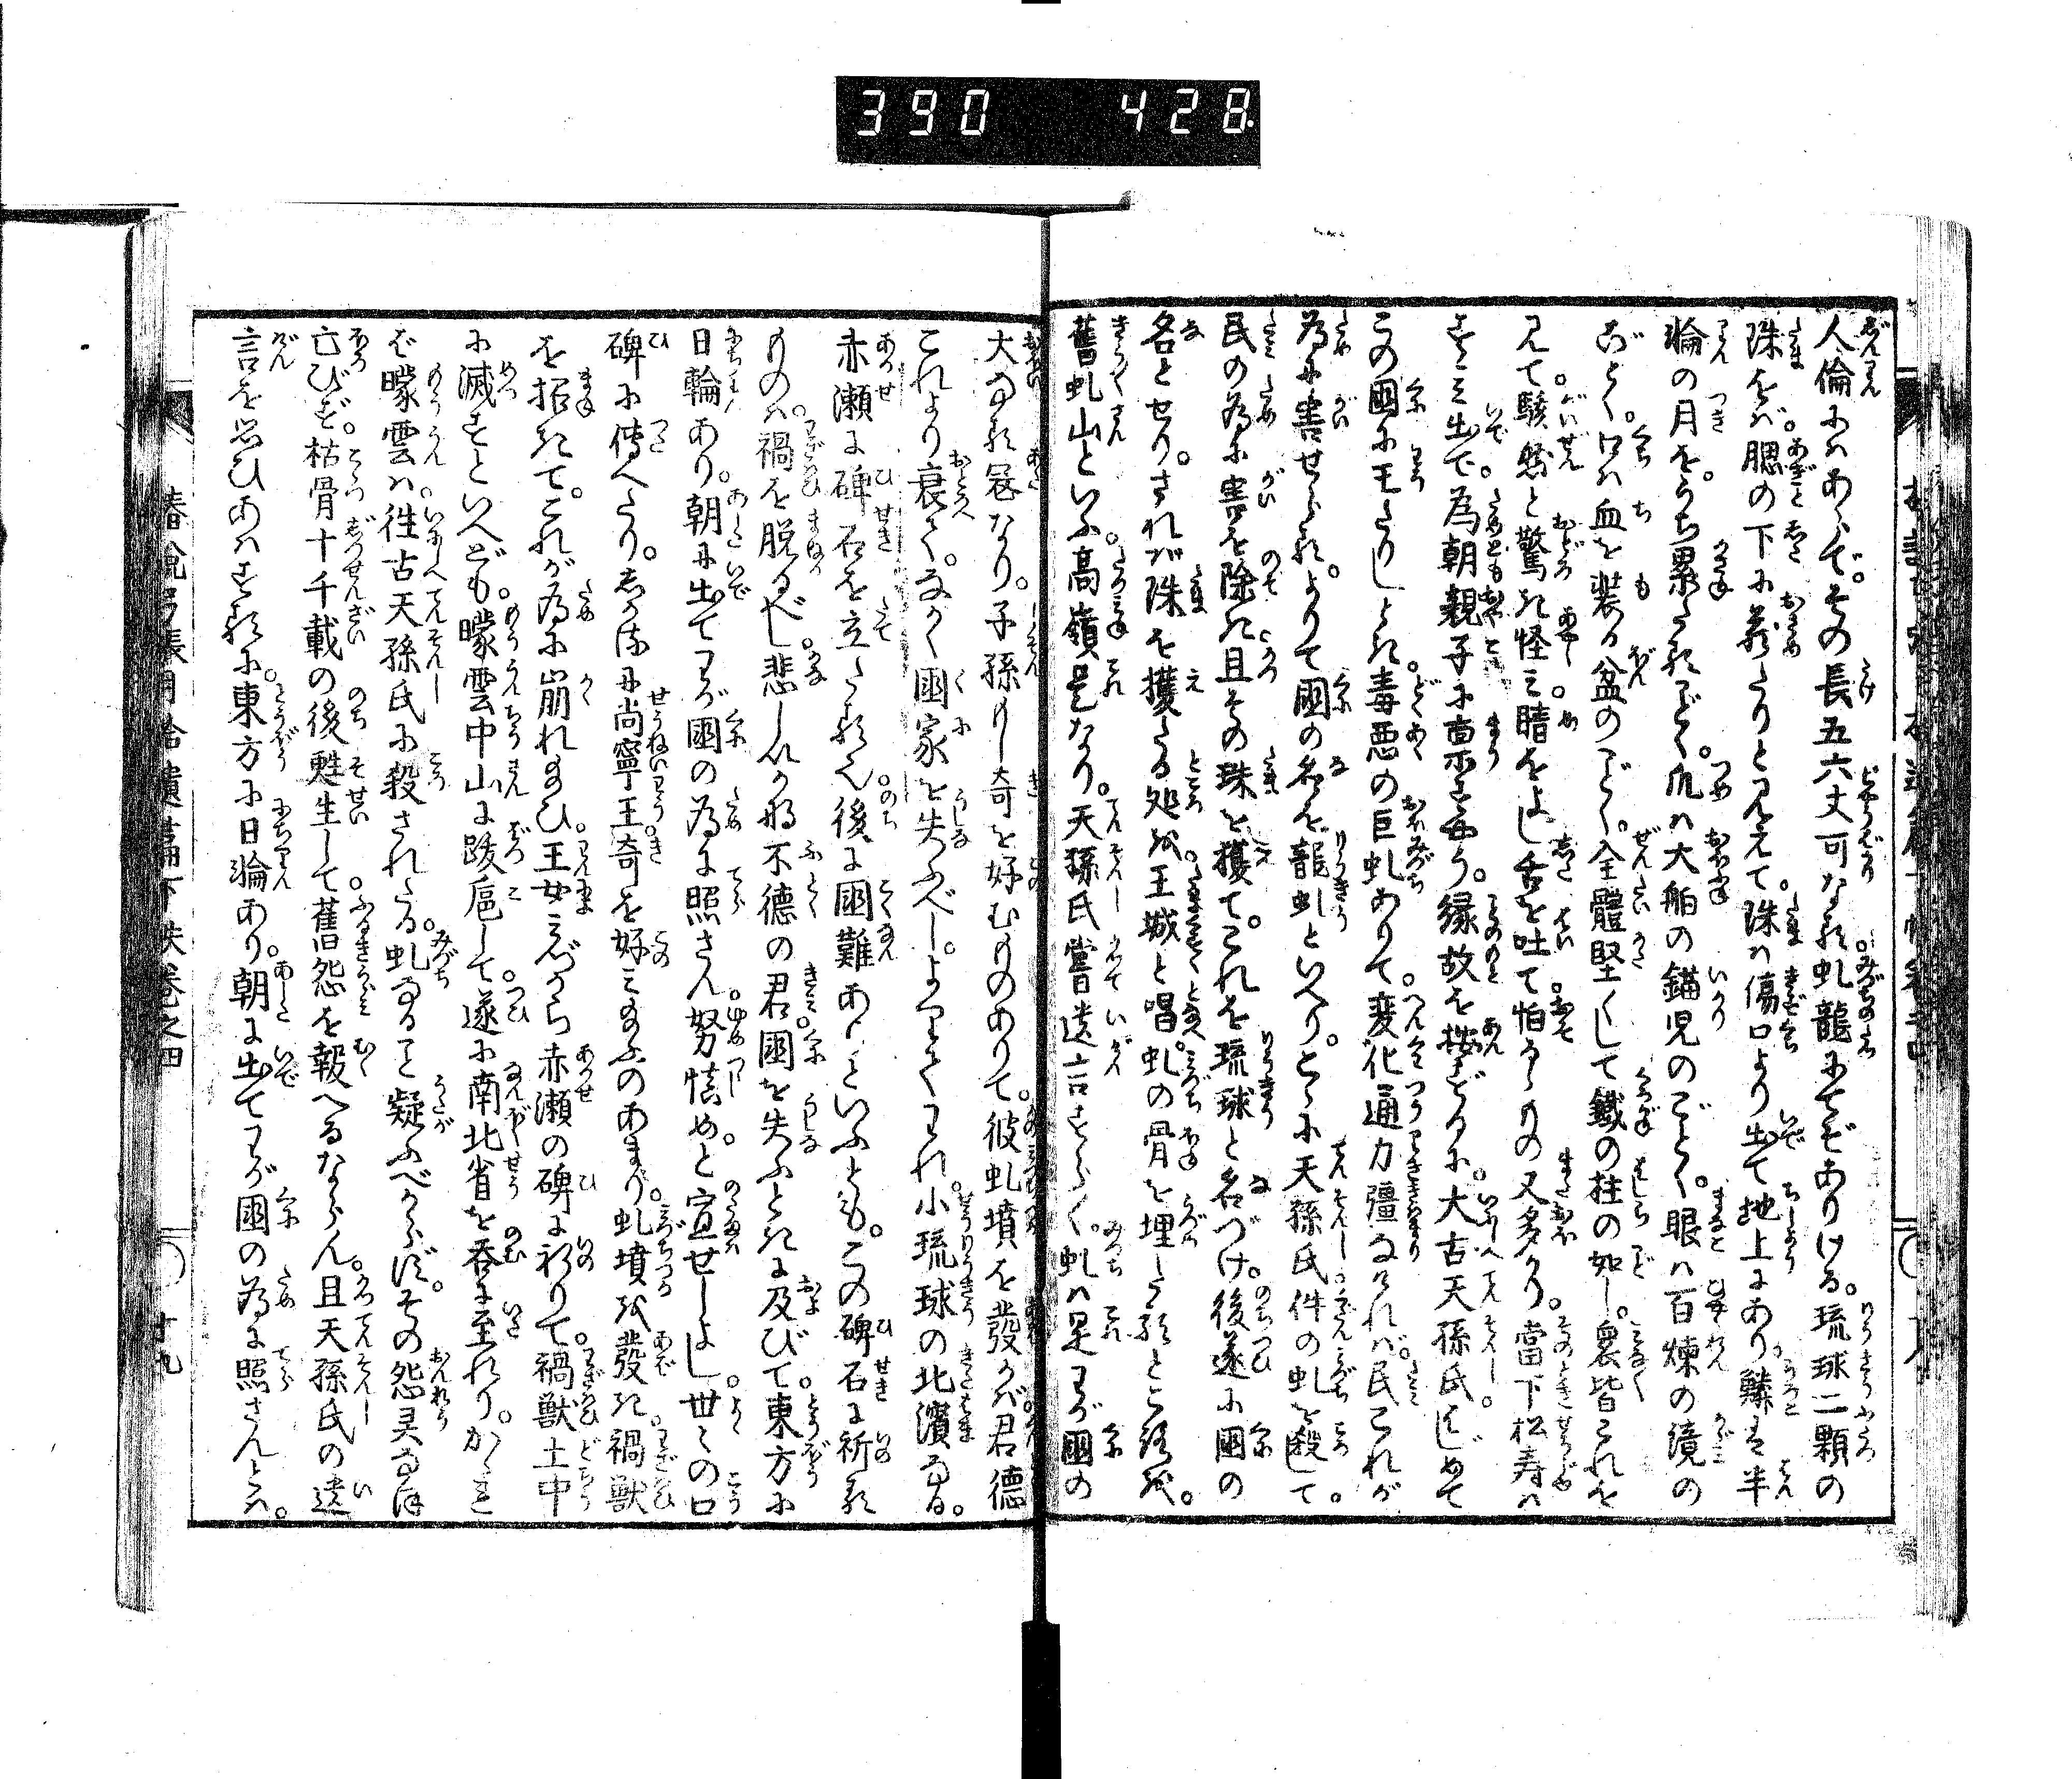 390 428
人倫にはあらで。その長五六丈可なる虬龍にてぞありける。琉球二顆の
珠をば。腮の下に藏たりと見えて。珠は傷口より出て地上にあり。鱗は半
輪の月を。うち累たるごとく。爪は大舶の錨児のごとく。眼は百煉の鏡の
ごとく。口は血を装る盆のごとく。全體堅くして鐵の柱の如し。衆皆これを
見て。駭然と驚き怪み。睛を
し舌を吐て怕るゝもの又多かり。當下松寿は
すゝみ出て。為朝親子に
すやう。縁故を按ずるに。大古天孫氏はじめて
この國に王たりしとき。毒悪の巨虬ありて。変化通力彊なりければ。民これが
為に害せらる。よりて國の名を龍虬といへり。こゝに天孫氏件の虬を殺して。
民の為に害を除き且その珠を獲て。これを琉球と名づけ。後遂に國の
名とせり。されば珠を獲たる処を。王城と唱。虬の骨を埋たるところを。
舊虬山といふ。高嶺是なり。天孫氏嘗遺言すらく。虬は是わが國の
大なる冦なり。子孫もし奇を好むものありて。彼虬墳を發かば。君德
これより衰て。ながく國家を失ふべし。よりてわれ。小琉球の北濱なる。
赤瀬に碑石を立たるぞ。後に國難ありといふとも。この碑石に祈る
ものは。禍を脱るべし。悲しいかな不德の君。國を失ふときに及びて。東方に
日輪あり。朝に出てわが國の為に照さん。努慎めと宣せしよし。世々の口
碑に傳へたり。しかるに尚寧王。奇を好み給ふのあまり。虬墳を發き。禍獣
を招きて。これが為に崩れ給ひ。王女みづから赤瀬の碑に祈りて。禍獣土中
に滅すといへども。曚雲中山に跋扈して。遂に南北省を吞に至れり。かゝれ
ば曚雲は。往古天孫氏に殺されたる。虬なること疑ふべからず。その怨灵なほ
亡びず。枯骨十千載の後甦生して。舊怨を報へるならん。且天孫氏の遺
言を思ひあはするに。東方に日輪あり。朝に出てわが國の為に照さんとは。
椿説弓張月拾遺篇下帙巻之四
廿九